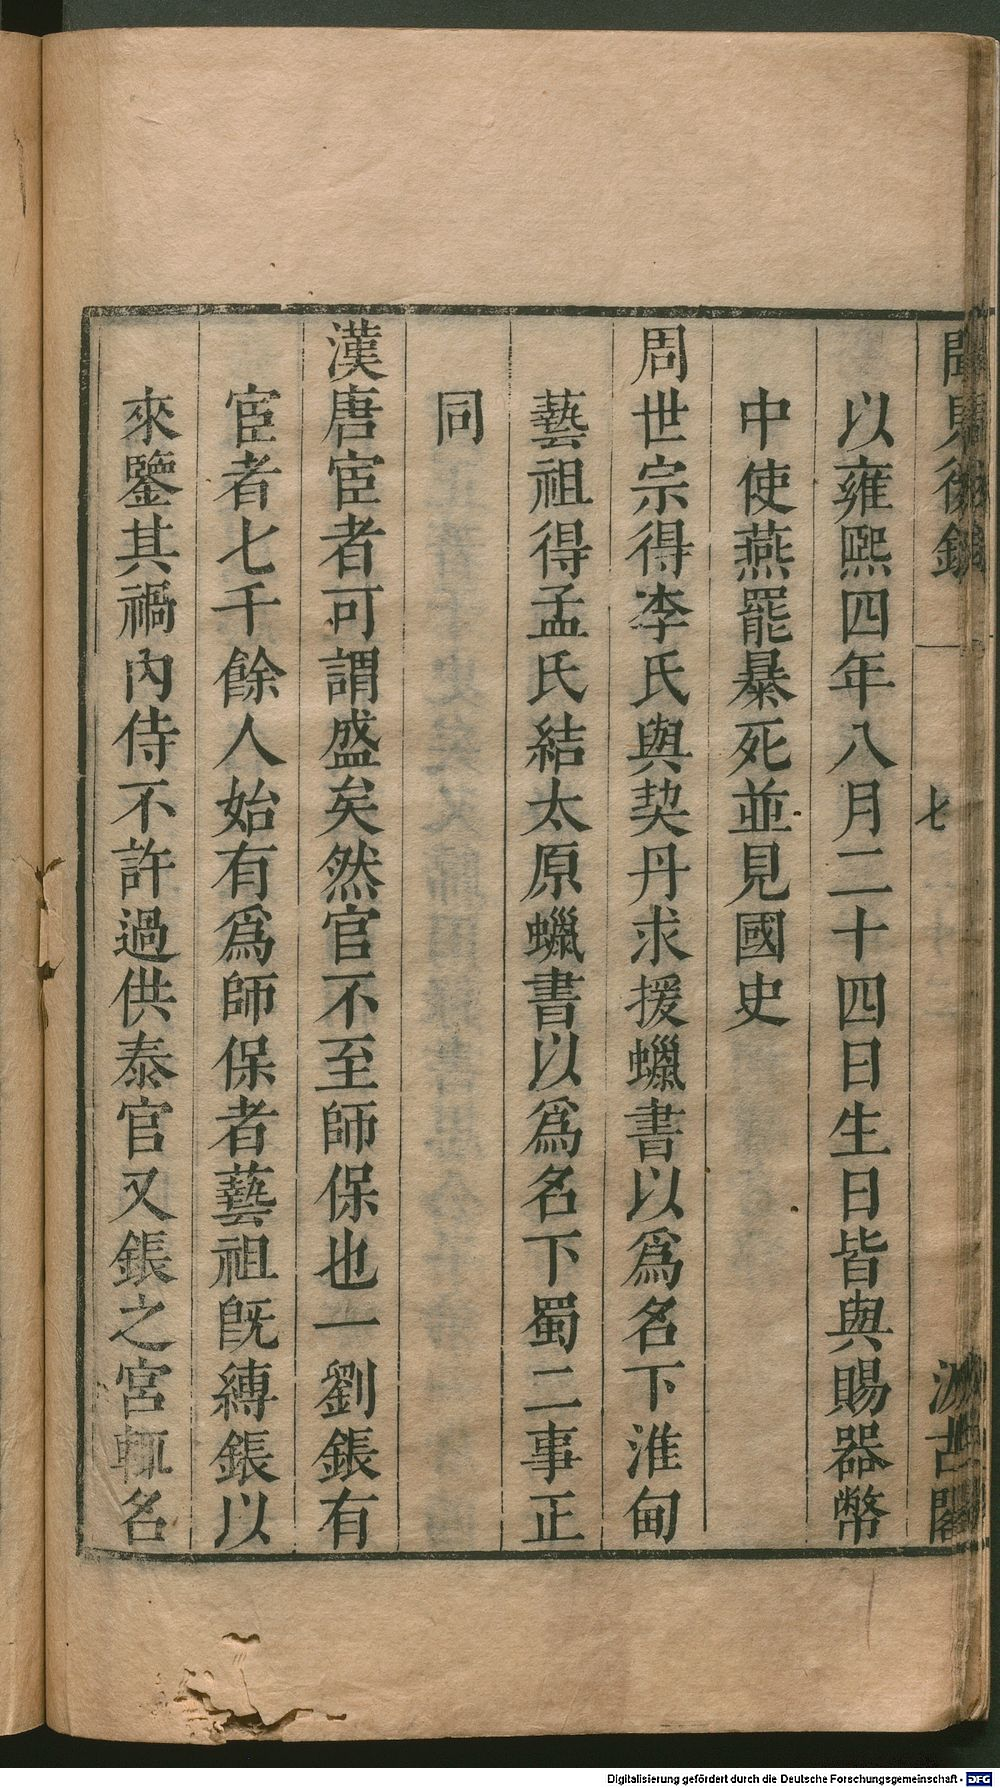 聞見後錄
七
汲古閣
以雍熙四年八月二十四日生日皆與賜器幣
中使燕罷暴死並見國史
周世宗得李氏與契丹求援蠟書以爲名下淮甸
藝祖得孟氏結太原蠟書以爲名下蜀二事正
同
漢唐宦者可謂盛矣然官不至師保也一劉鋹有
宦者七千餘人始有爲師保者藝祖旣縛鋹以
來鑒其禍內侍不許過供奉官又鋹之宮輒名
Digitalisierung gefördert durch die Deutsche Forschungsgemeinschaft - DFG